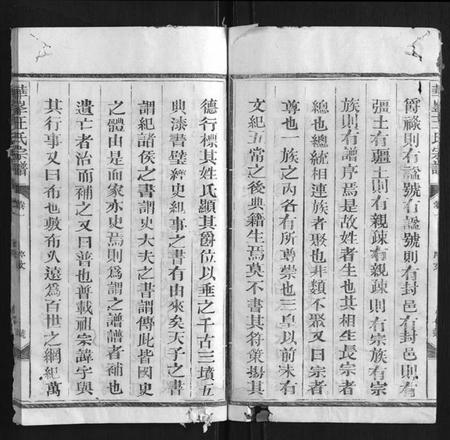 爵祿則有謚號有謚號則有封邑有封邑則有
彊土有疆土則有親疎有親疎則有宗族有宗
族則有譜序焉是故姓者生也其相生長宗者
總也總統相連族者聚也非類不聚又曰宗者
尊也一族之內各有所尊崇也三皇以前未有
文紀五常之後典籍生焉莫不書其符策揚其
德行標其姓氏顯其爵位以垂之千古三墳五
典漆書壁經史紀事之書有由來矣天子之書
謂紀諸侯之書謂史大夫之書謂傳此皆國史
之體由是而家亦史焉則為謂之譜譜者補也
遺亡者治而補之又曰普也普載祖宗諱字與
其行事又曰布也敷布久遠為百世之綱紀萬
華峯王氏宗譜
卷一
序文